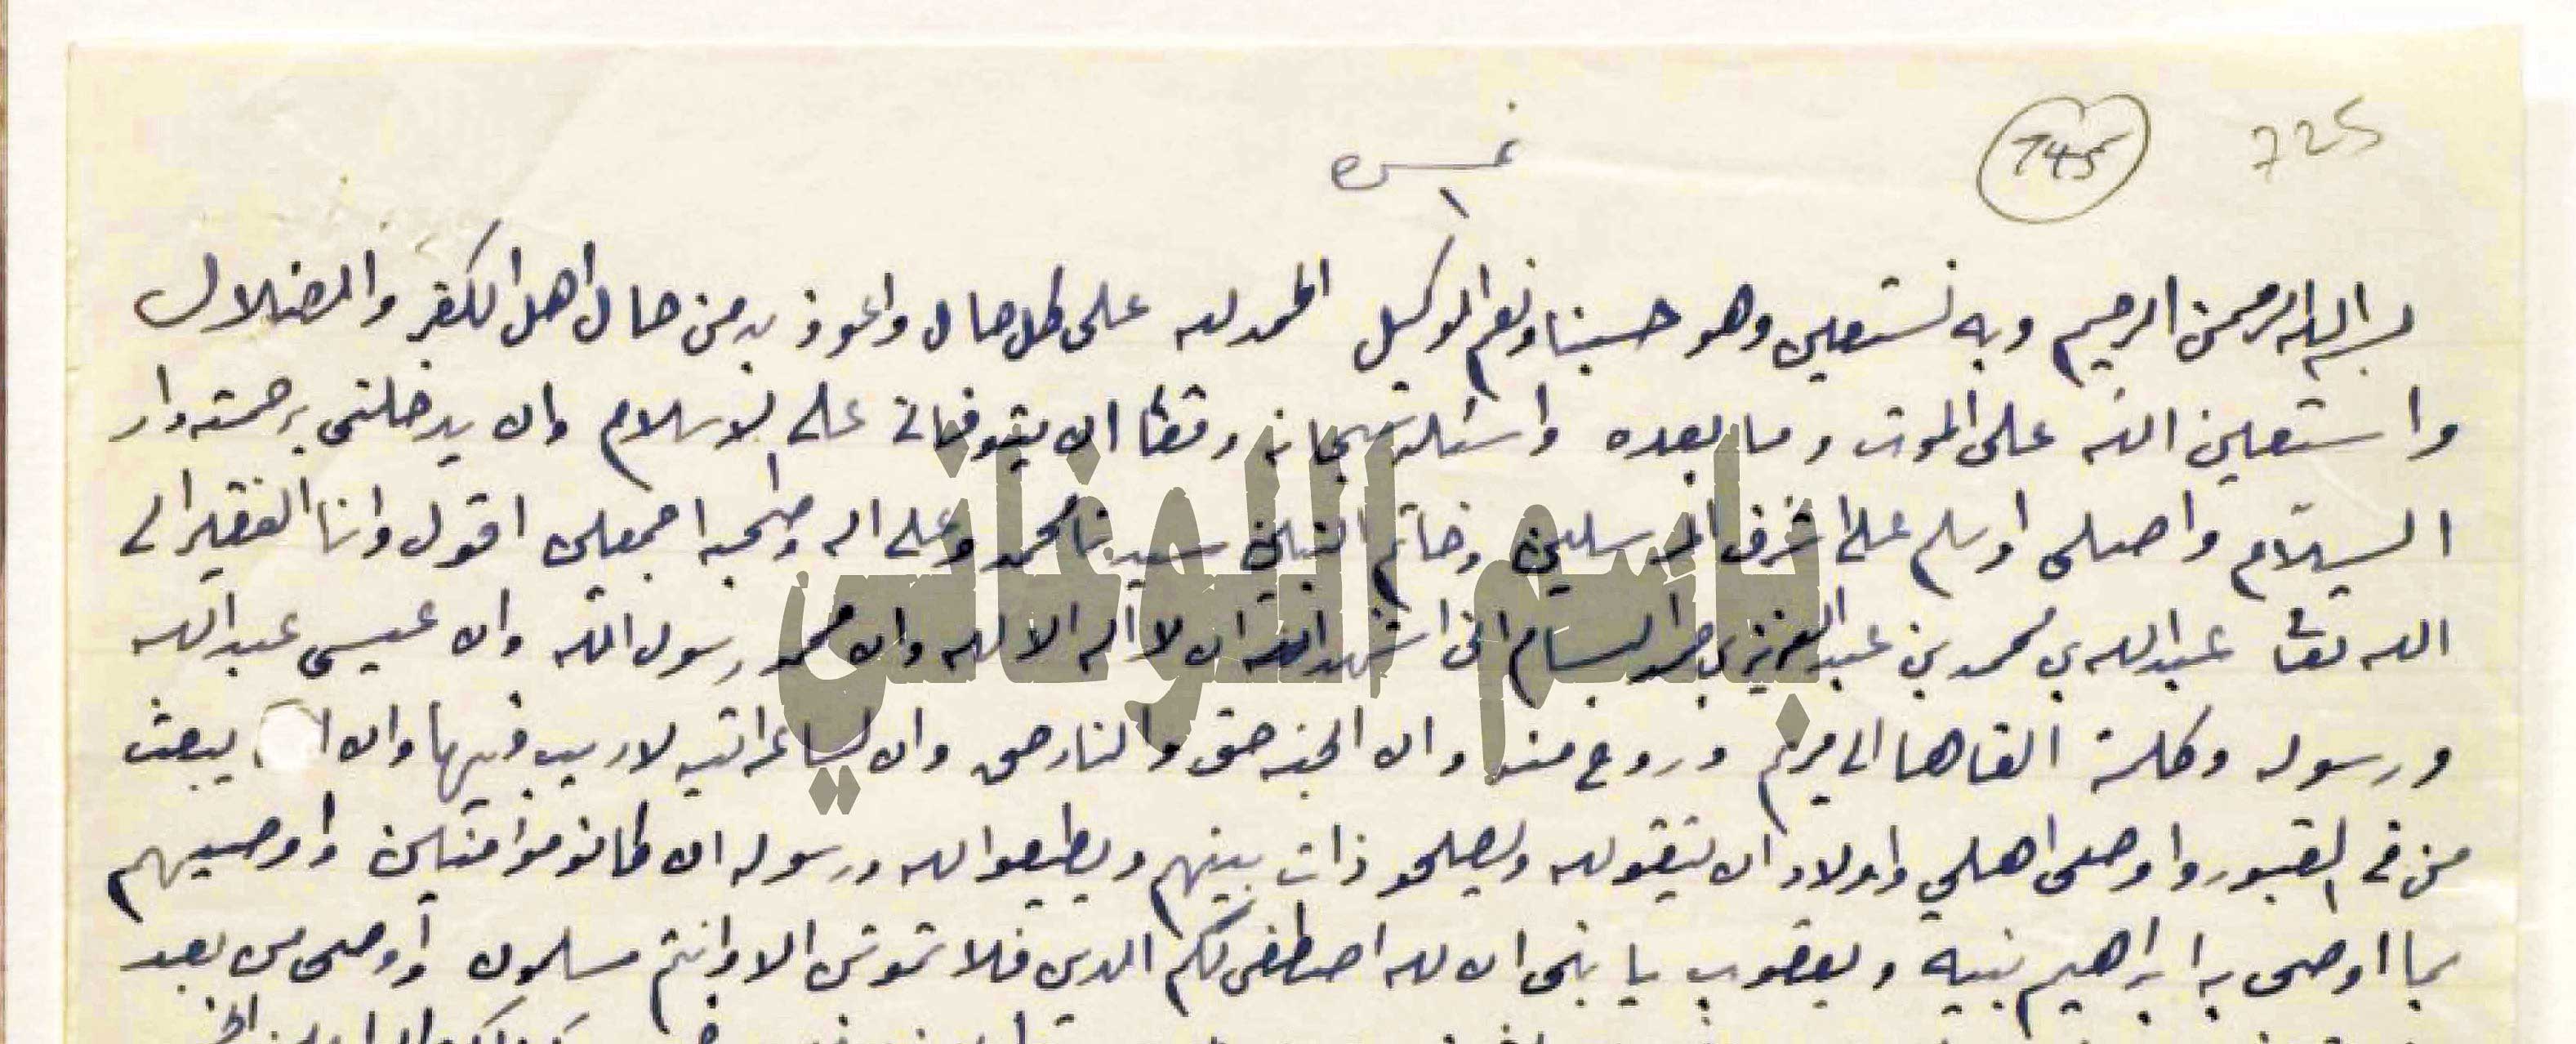 725
745
بسم الله الرحمن الرحيم وبه نستعين وهو حسبنا ونعم الوكيل الحمد لله على كل حال واعوذ به من حال اهل الكفر والضلال
واستعين الله على الموت وما بعده واسئله سبحانه وتعالى ان يتوفاني على الاسلام وان يدخلني برحمته دار
السلام واصلي اوسلم على اشرف المرسلين وخاتم النبين سيدنا محمد وعلى اله وصحبه اجمعين اقول وانا الفقير الى
الله تعالى عبدالله بن محمد بن عبدالعزيز بن حمد البسام اني اشهد ان لا اله الا لله وان محمد رسول الله وان عيسى عبدالله
ورسوله وكلمة القاها الى مريم وروح منه وان الجنه حق والنار حق وان لساعه اتيه لاريب فيها وان يبعث
من في القبور واوصي اهلي واولاد ان يتقو لله ويصلحو ذات بينهم ويطيعو الله ورسوله ان كانو مؤمنين واوصيهم
بما اوصى به ابراهيم بنيه ويعقوب يا بني ان لله اصطفى لكم الدين فلا تموتن الا وانتم مسلمون واوصى من بعد
باسم اللوغاني